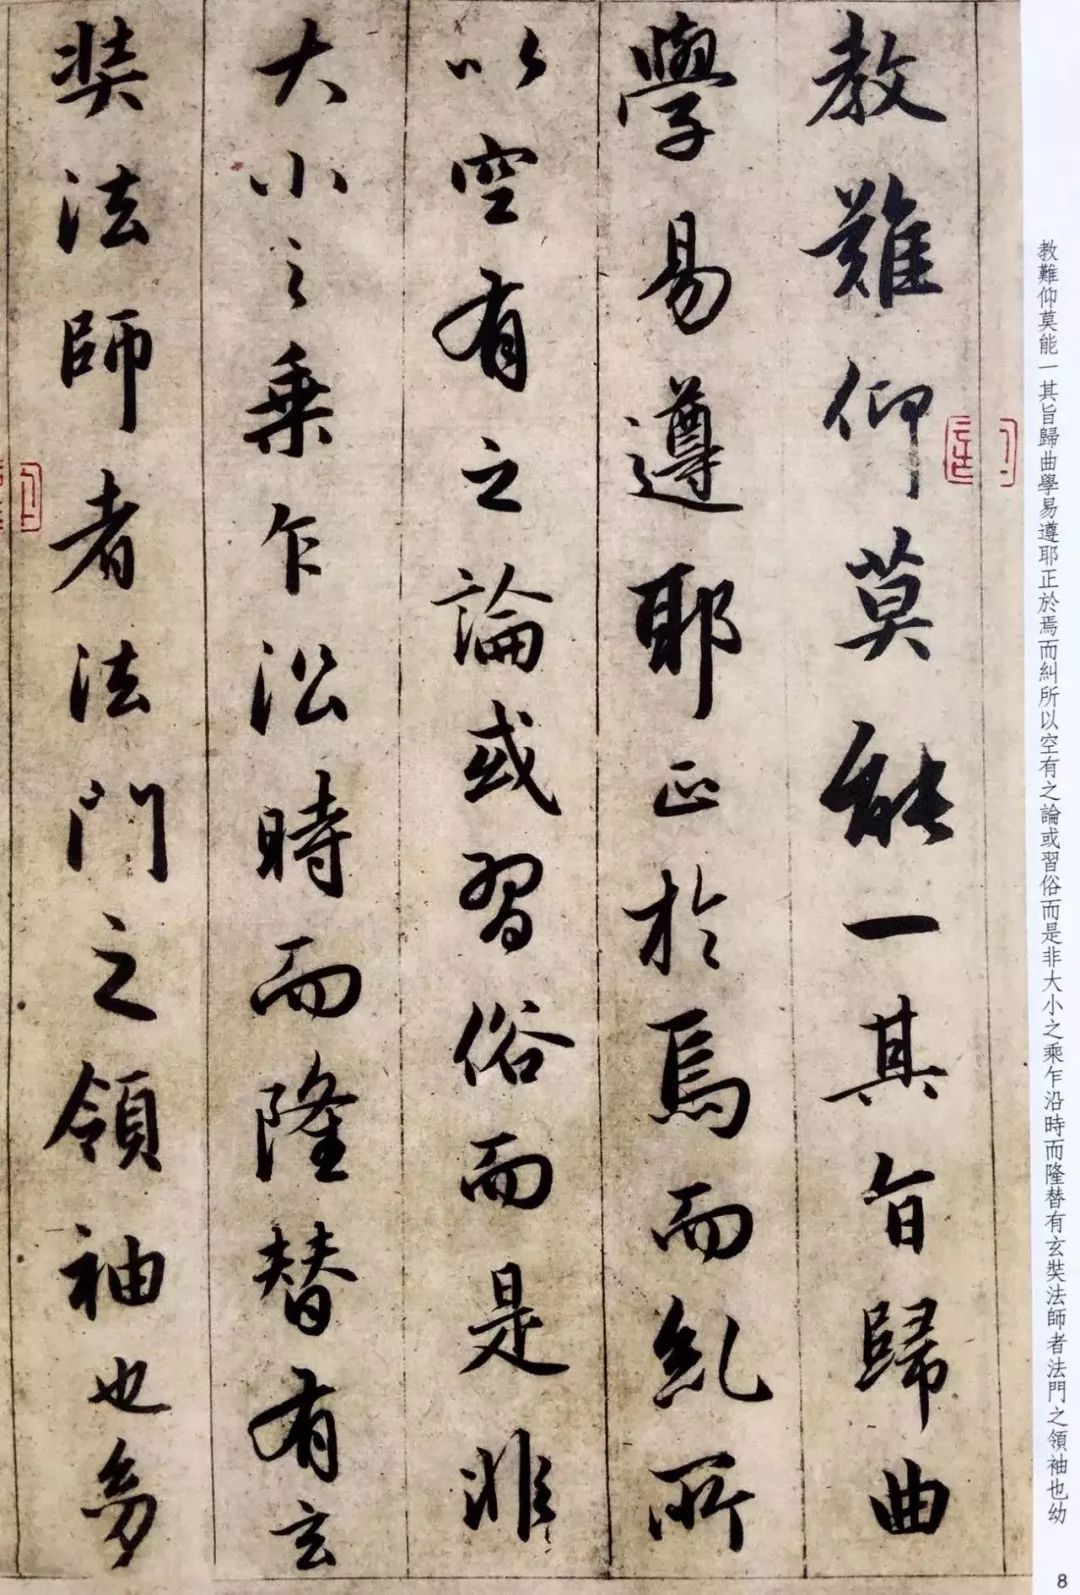 教難仰莫能一其旨歸曲
學易遵耶正於焉而糾所
以空有之論或習俗而是非
大小之乗乍沿時而隆替有玄
奘法師者法門之領袖也幼
教難仰莫能一其旨歸曲學易遵耶正於焉而糾所以空有之論或習俗而是非大小之乘乍沿時而隆替有玄奘法師者法門之領袖也幼
8